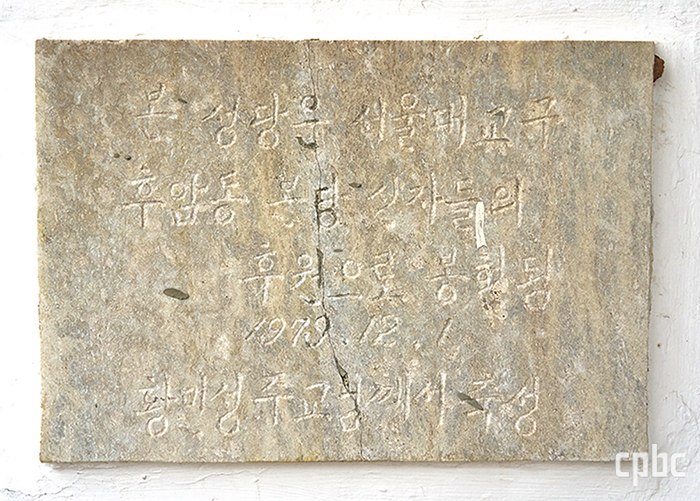 본 성당은 서울대교구
후암동 본당 신자들의
후원으로 봉헌됨
1979. 12. 1
황민성 주교님께서 축성
cpbc